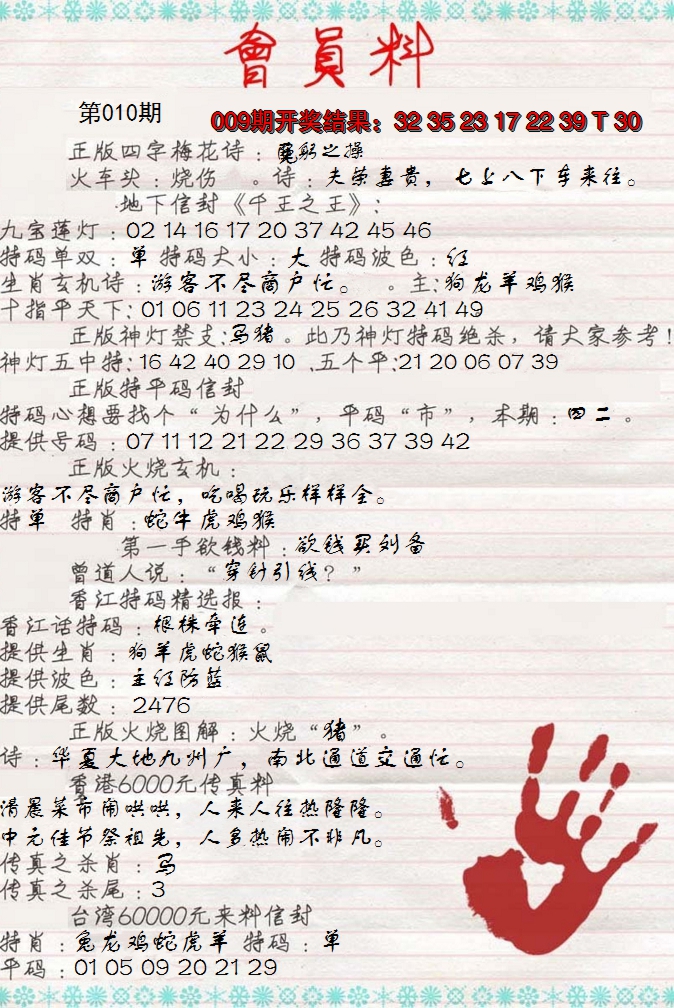 會員料
第010期
009期开奖结果：32 35 23 17 22 39 T 30
正版四字梅花诗：冕躬之操
火车头：烧伤 。诗：夫荣妻贵，七上八下车来往。
地下信封《千王之王》：
九宝莲灯：02 14 16 17 20 37 42 45 46
特码单双：单 特码大小：大 特码波色：红
生肖玄机诗：游客不尽商户忙。 。主：狗龙羊鸡猴
十指平天下：01 06 11 23 24 25 26 32 41 49
正版神灯禁支：马猪。此乃神灯特码绝杀，请大家参考！
神灯五中特：16 42 40 29 10 、五个平：21 20 06 07 39
正版特平码信封
特码心想要找个“为什么”，平码“市”，本期：四二。
提供号码：07 11 12 21 22 29 36 37 39 42
正版火烧玄机：
游客不尽商户忙，吃喝玩乐样样全。
特单 特肖：蛇牛虎鸡猴
第一手欲钱料：欲钱买刘备
曾道人说：“穿针引线？”
香江特码精选报：
香江话特码：根株牵连。
提供生肖：狗羊虎蛇猴鼠
提供波色：主红防蓝
提供尾数：2476
正版火烧图解：火烧“猪”。
诗：华夏大地九州广，南北通道交通忙。
香港6000元传真料
清晨菜市闹哄哄，人来人往热隆隆。
中元佳节祭祖先，人多热闹不非凡。
传真之杀肖：马
传真之杀尾：3
台湾60000元来料信封
特肖：兔龙鸡蛇虎羊 特码：单
平码：01 05 09 20 21 29